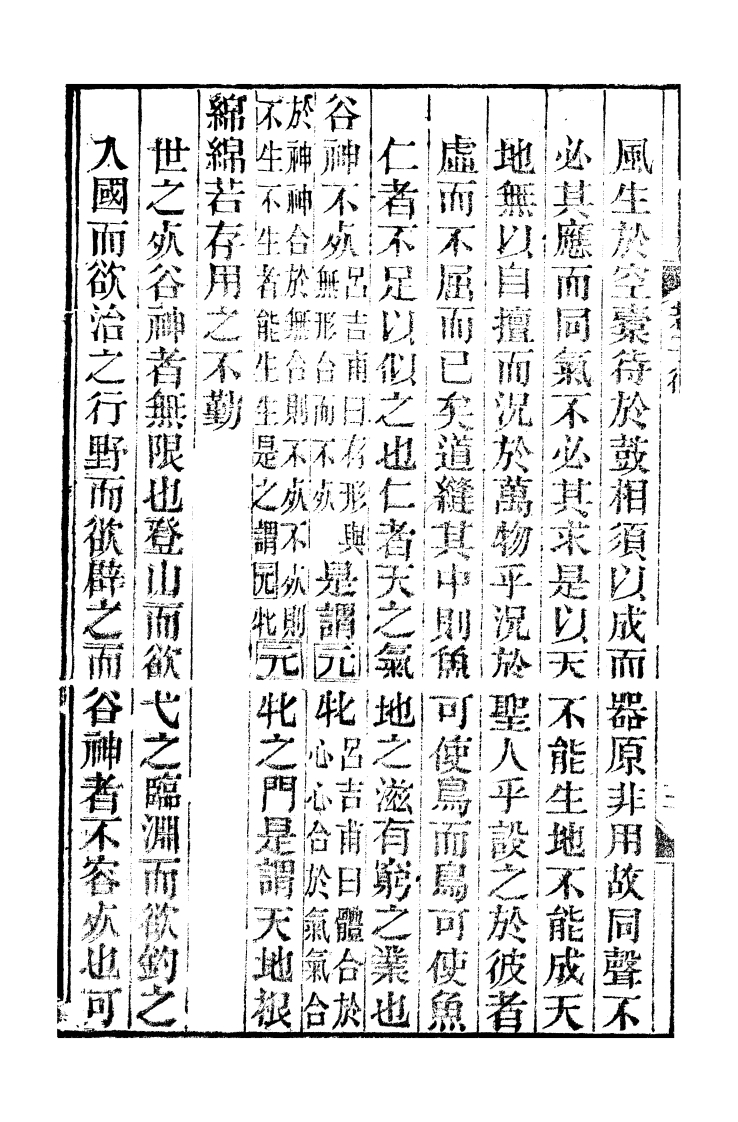 風生於空橐待於鼓相須以成而器原非用故同聲不
必其應而同氣不必其求是以天不能生地不能成天
地無以自擅而況於萬物乎況於聖人乎設之於彼者
虛而不屈而已矣道縫其中則魚可使鳥而鳥可使魚
仁者不足以似之也仁者天之氣地之滋有窮之業也
谷神不死
呂吉甫曰有形與
無形合而不死
是謂元牝
呂吉甫曰體合於
心心合於氣氣合
於神神合於無合則不死不死則
不生不生者能生生是之謂元牝
元牝之門是謂天地根
綿綿若存用之不勤
世之死谷神者無限也登山而欲弋之臨淵而欲釣之
入國而欲治之行野而欲辟之而谷神者不容死也可